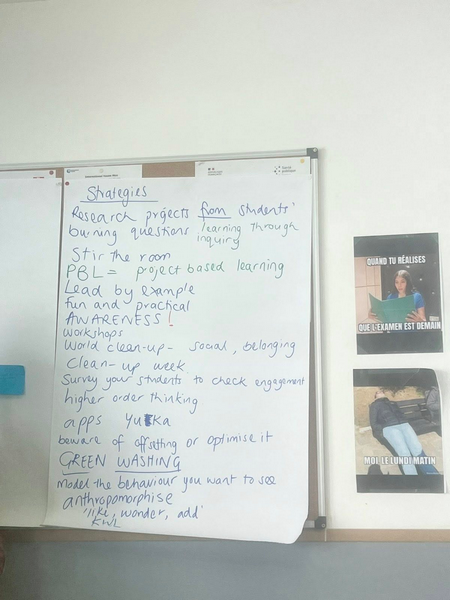 Strategies
Research projects from students'
burning questions learning through
inquiring
Stir the room
PBL = project based learning
Lead by example
fun and practical
AWARENESS!
workshops
World clean-up - social, belonging
Clean-up week
Survey your students to check engagement
higher order thinking
apps Yuka
beware of offsetting or optimise it
GREEN WASHING
model the behaviour you want to see
anthropomorphise
"like, wonder, add"
KWL
QUAND TU RÉALISES
QUE L'EXAMEN EST DEMAIN
MOI, LE LUNDI MATIN